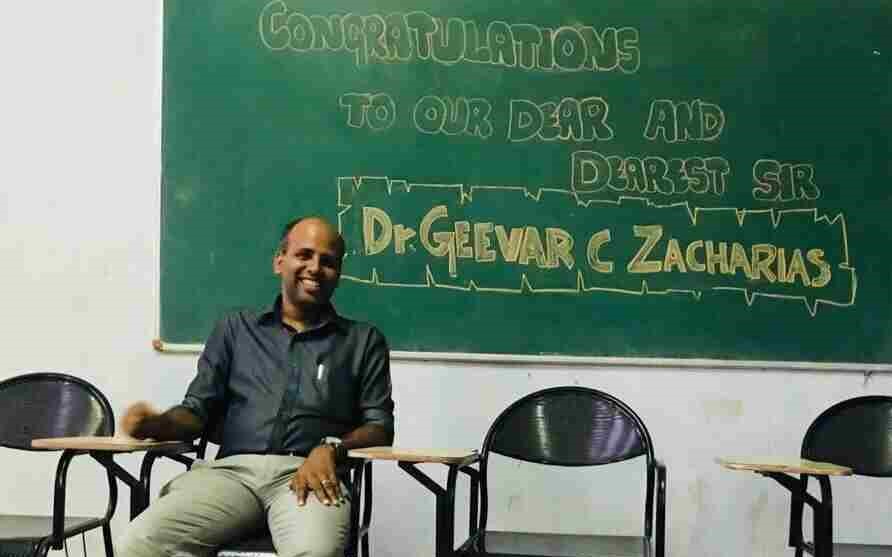 CONGRATULATIONS
TO OUR DEAR AND
DEAREST SIR
Dr. GEEVAR C ZACHARIAS